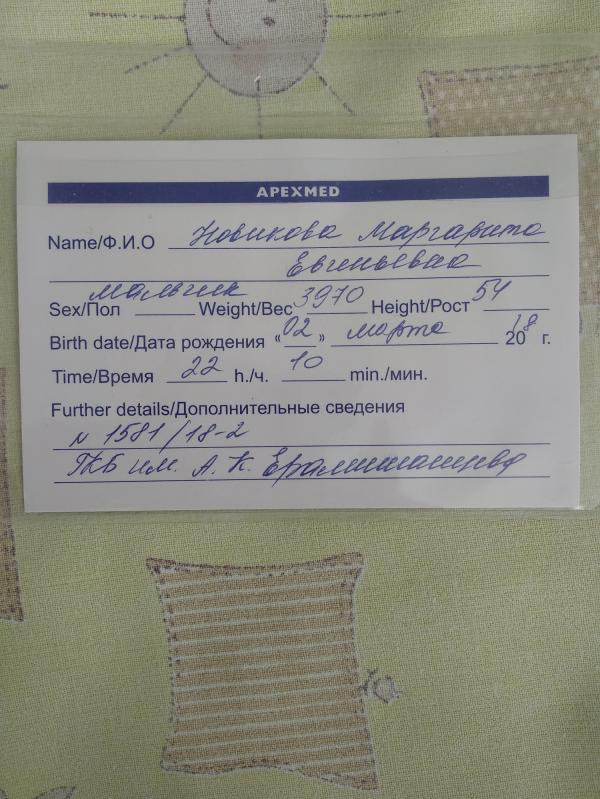 APEXMED
Name/Ф.И.О Новикова Маргарита
Евгеньевна
Sex/Пол мальчик Weight/Вес 3970 Height/Рост 54
Birth date/Дата рождения «02» марта 2018 г.
Time/Время 22 h./ч. 10 min./мин.
Further details/Дополнительные сведения
N 1581/18-2
ГКБ им. А. К. Ерамишанцева